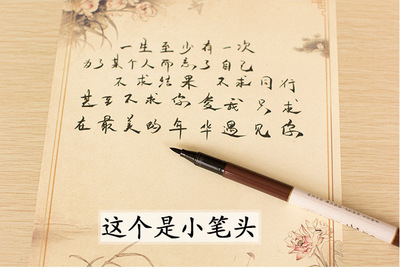 一生至少有一次
为了某个人而忘了自己
不求结果 不求同行
甚至不求你爱我只求
在最美的年华遇见你
这个是小笔头